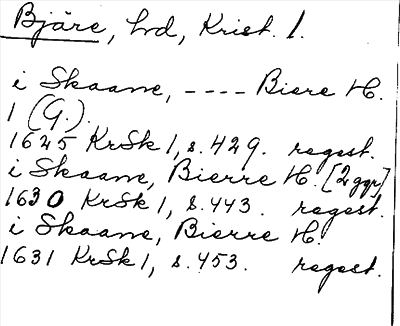 Bjäre, hd, Krist. l.
i Skaane, ---- Biere H.
1 (G.).
1625 KrSk 1, s. 429. regest.
i Skaane, Bierre H. [2 ggr]
1630 KrSk 1, s. 443. regest.
i Skaane, Bierre H.
1631 KrSk 1, s. 453. regest.